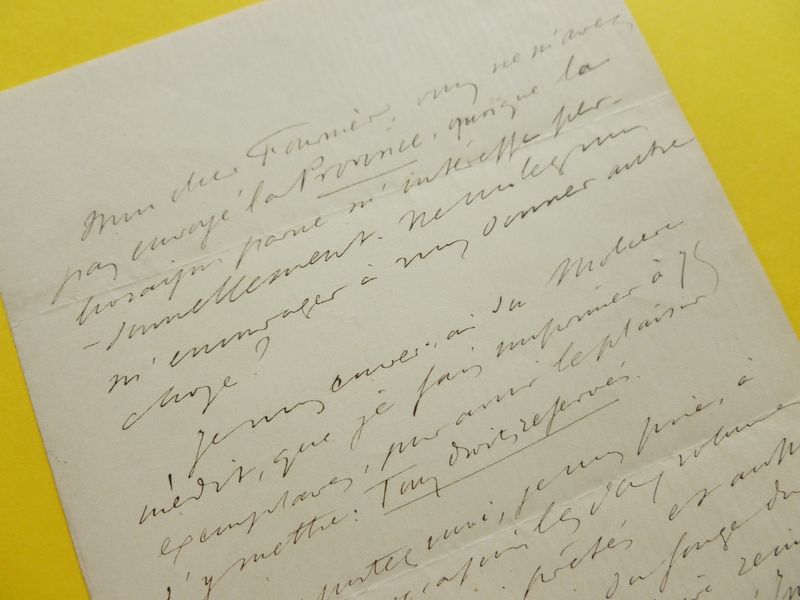 Mon cher Fournier, vous ne m'avez
pas envoyé la Province, quoique la
livraison parue m'intéresse per-
-sonnellement. Ne voulez vous
m'encourager à vous donner autre
chose?
Je vous enverrai du Moliere
inédit, que je fais imprimer à 75
exemplaires, pour avoir le plaisir
d'y mettre: Tous droits réservés.
moi, je vous prie, à
les volumes
prêtés et
du